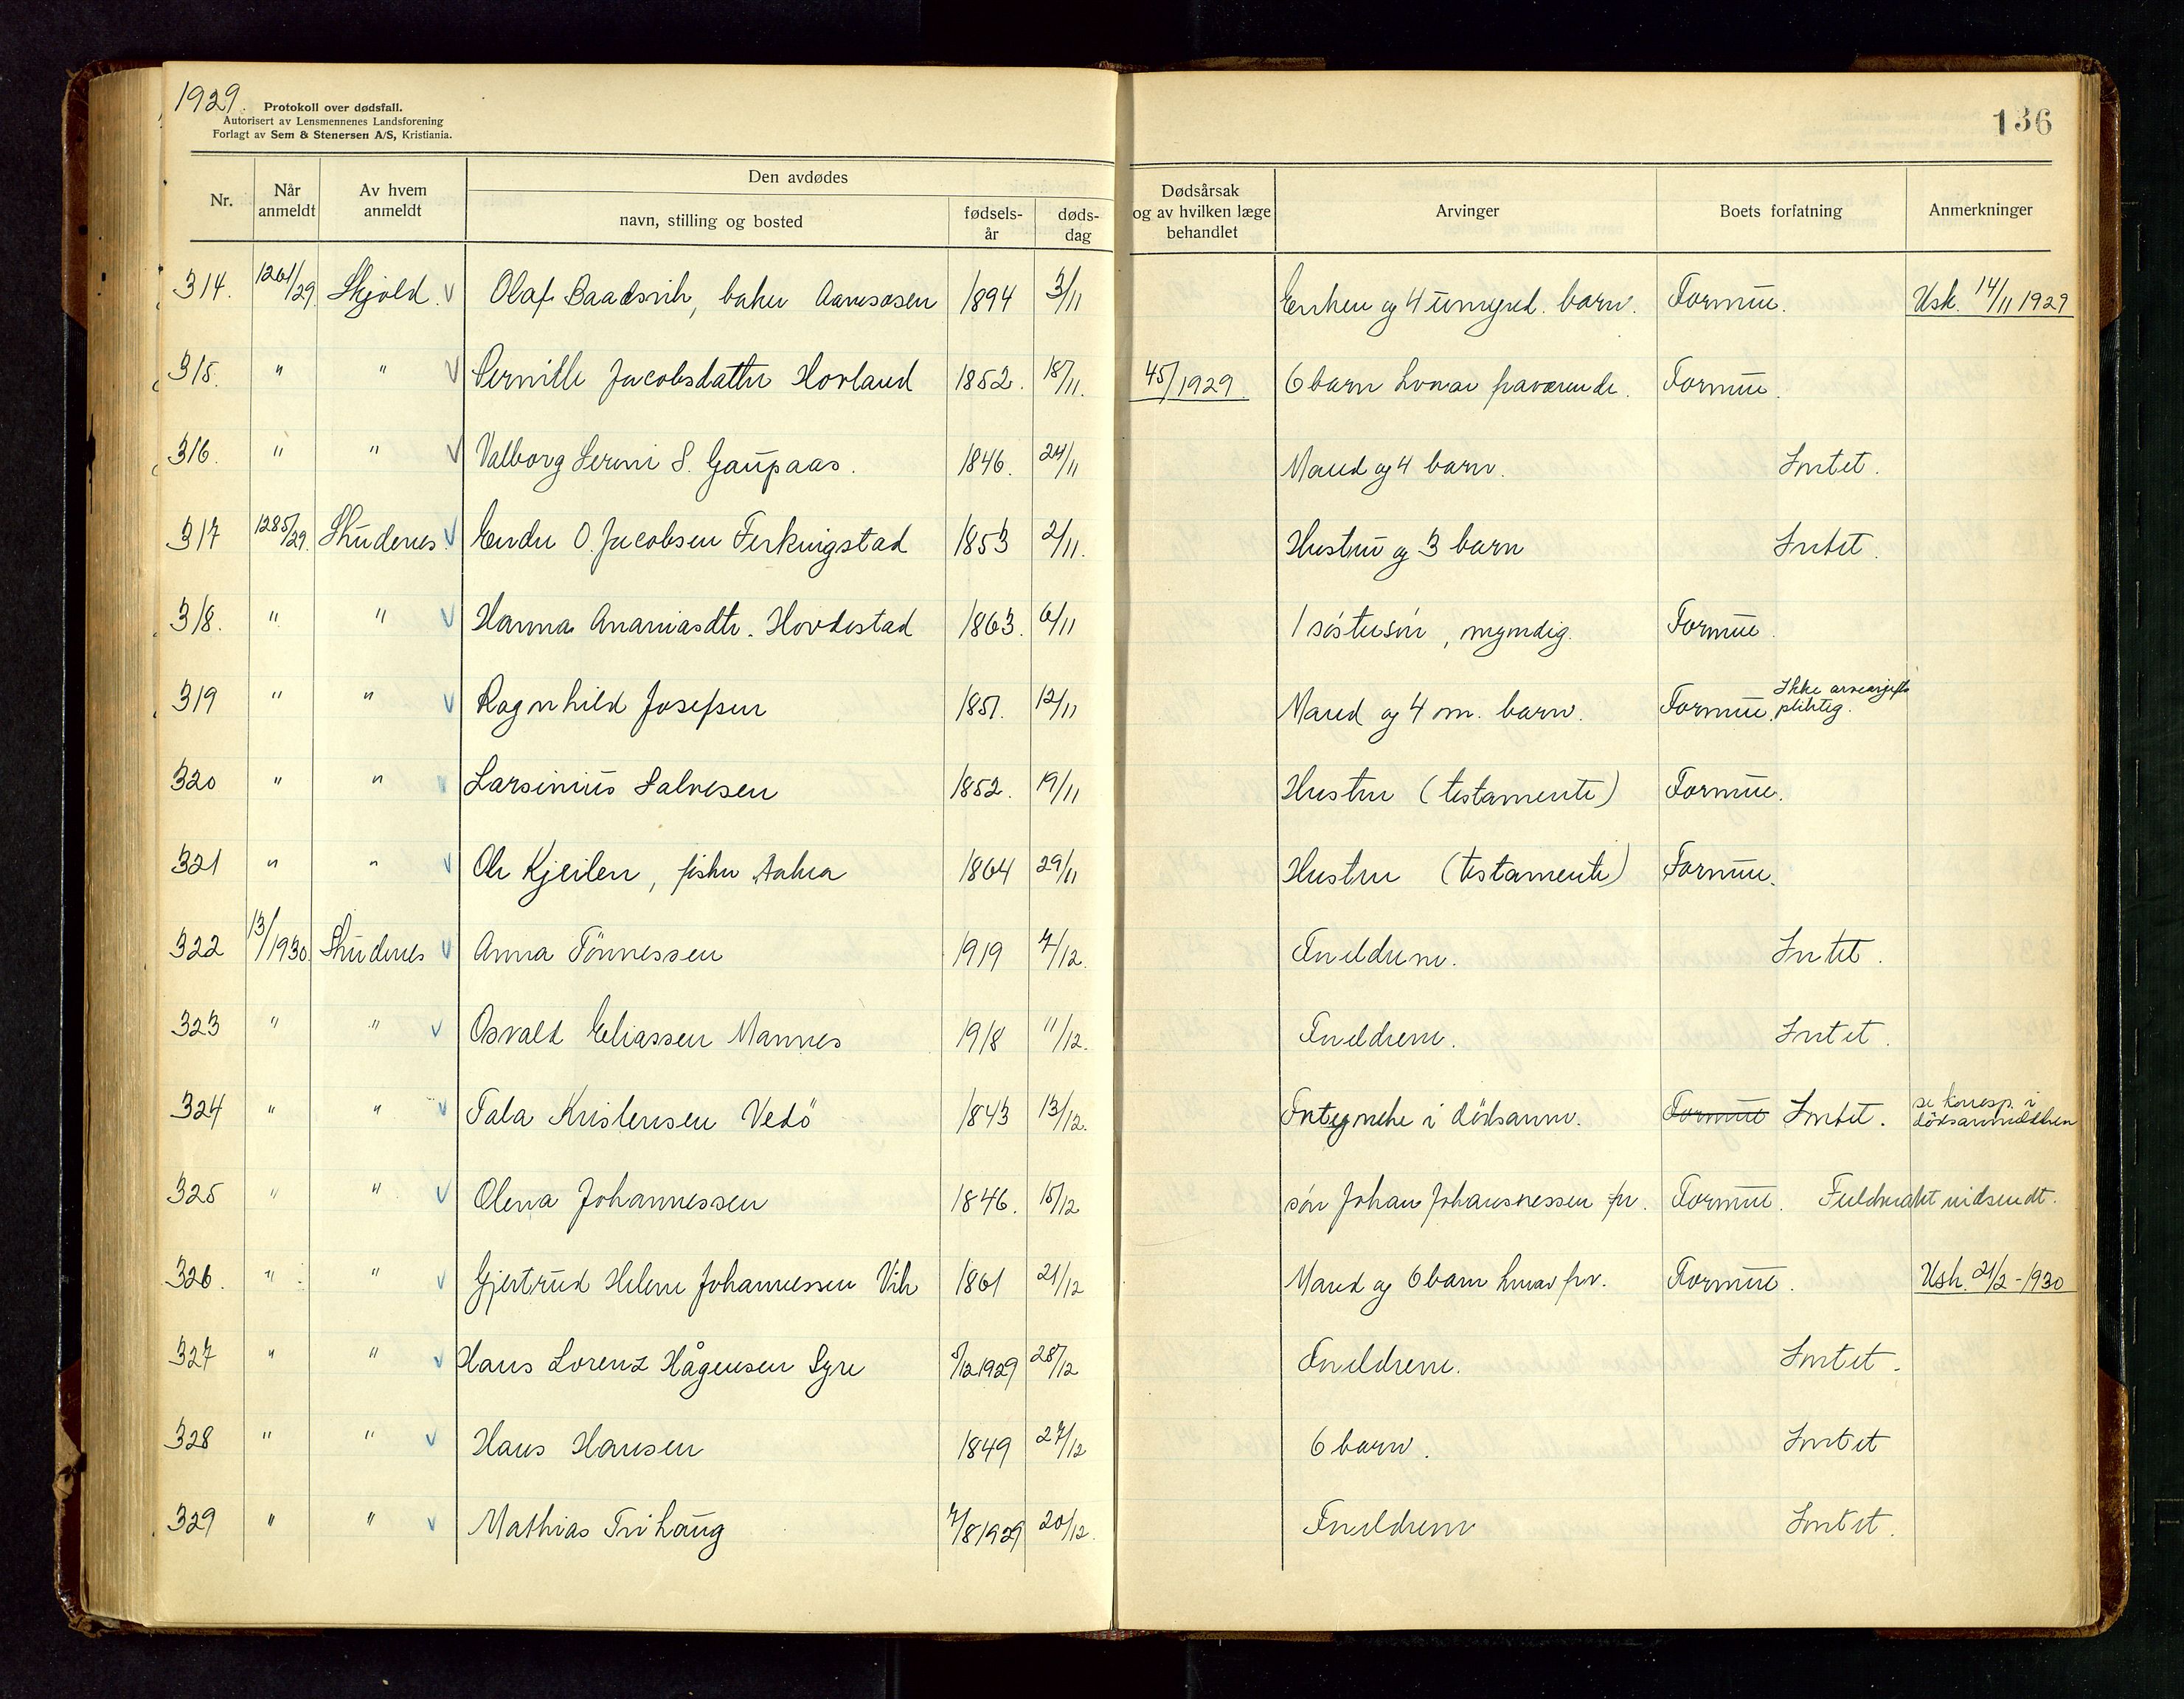 1929.
Protokoll over dødsfall.
Autorisert av Lensmennenes Landsforening
Forlagt av Sem & Stenersen A/S, Kristiania.
136
Nr. Når anmeldt Av hvem anmeldt Den avdødes navn, stilling og bosted fødselsår dødsdag Dødsårsak og av hvilken læge behandlet Arvinger Boets forfatning Anmerkninger
314. 1261/29 Skjold. V Olaf Baadsvik, baker 1894 3/11 Enken og 4 umynd. barn. Formue. Usk. 14/11 1929
315. " " V Pernille Jacobsdatter Hovland 1852. 18/11. 45/1929. 6 barn hvorav fraværende. Formue.
316. " " V Valborg S. Gaupaas. 1846. 24/11 Mand og 4 barn. Intet.
317 1285/29. Skudenes V Endre O. Jacobsen Ferkingstad 1853 2/11. Hustru og 3 barn Intet.
318. " " V Hanna Ananiasdtr. Hovdestad 1863. 6/11 1 søstersøn, myndig. Formue.
319 " " V Ragnhild Josefsen 1851. 12/11 Mand og 4 m. barn. Formue. Ikke arveavgifts pliktig.
320 " " V Larsinius Salvesen 1852. 19/11 Hustru (testamente) Formue.
321 " " V Ole Kjeilen, fisker Aakra 1864 29/11 Hustru (testamente) Formue.
322 13/1930. Skudenes V Anna Tönnessen 1919 7/12. Foreldrene. Intet.
323 " " V Osvald Eliassen Mannes 1918 11/12. Foreldrene. Intet.
324 " " V Tala Kristensen Vedö 1843 13/12. i dödsanm. Formue Intet. se korresp. i dödsanmeldelsen
325 " " V Olena Johannessen 1846. 15/12 søn Johan Johannessen fr. Formue. Fuldmakt utsendt.
326. " " V Gjertrud Helene Johannessen Vik 1861 21/12 Mand og 6 barn hvorav frv. Formue. Usk. 21/2-1930
327 " " V Hans Lorenz Hågensen Syre 5/12 1929 28/12 Foreldrene. Intet.
328 " " V Hans Hansen 1849 27/12 6 barn. Intet
329 " " V Mathias Trihaug 7/8 1929 20/12. Foreldrene Intet.